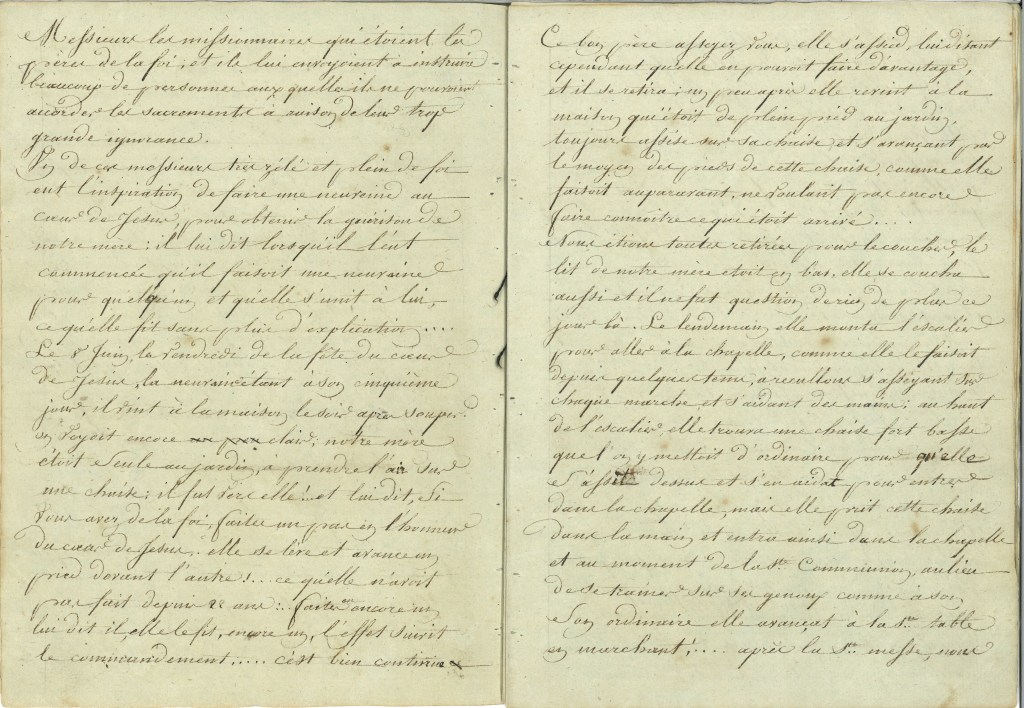 Messieurs les missionnaires qui étoient les
pères de la foi, et ils lui envoyoient à instruire
beaucoup de personnes aux quelles ils ne pouvoient
accorder les sacrements à raison de leur trop
grande ignorance.
Un de ces messieurs très zélé et plein de foi
eut l'inspiration de faire une neuvaine au
cœur de Jesus, pour obtenir la guérison de
notre mère: il lui dit lorsqu'il l'eut
commencée qu'il faisoit une neuvaine
pour quelqu'un, et qu'elle s'unit à lui,
ce qu'elle fit sans plus d'explication....
Le Juin, le vendredi de la fête du cœur
de Jesus, la neuvaine étant à son cinquième
jour, il vint à la maison le soir après souper.
on voyoit encore clair; notre mère
étoit seule au jardin, à prendre l'air sur
une chaise: il fut vers elle! et lui dit, Si
vous avez de la foi, faites un pas en l'honneur
du cœur de Jesus.. elle se lève et avance un
pied devant l'autre!... ce qu'elle n'avoit
pas fait depuis ans:. faites en encore un
lui dit il, elle le fit, encore un, l'effet suivit
le commandement,.... c'est bien continua
Ce bon père asseyez vous, elle s'assied, lui disant
cependant qu'elle en pouvoit faire d'avantage,
et il se retira; un peu après elle revint à la
maison qui étoit de plein pied au jardin,
toujours assise sur sa chaise, et s'avançant par
le moyen des pieds de cette chaise, comme elle
faisoit auparavant, ne voulant pas encore
faire connoitre ce qui étoit arrivé....
Nous étions toutes retirées pour le coucher, le
lit de notre mère étoit en bas, elle se coucha
aussi et il ne fut question de rien de plus ce
jour là. Le lendemain elle monta l'escalier
pour aller à la chapelle, comme elle le faisoit
depuis quelques tems, à recullons s'asseyant sur
chaque marche et s'aidant des mains; au haut
de l'escalier elle trouva une chaise fort basse
que l'on y mettoit d'ordinaire pour qu'elle
s'assit dessus et s'en aidat pour entrer
dans la chapelle, mais elle prit cette chaise
dans la main et entra ainsi dans la chapelle
et au moment de la Ste Communion, au lieu
de se trainer sur ses genoux comme à son
son ordinaire elle avançat à la Ste table
en marchant;.... après la Ste messe, nous